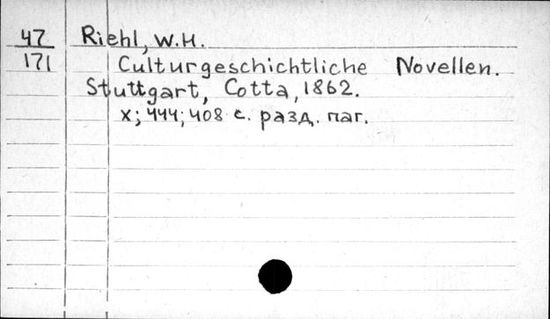 47 Riehl, W.H.
171 Culturgeschichtliche Novellen.
Stuttgart, Cotta, 1862.
x; 444; 408 с. разд. паг.